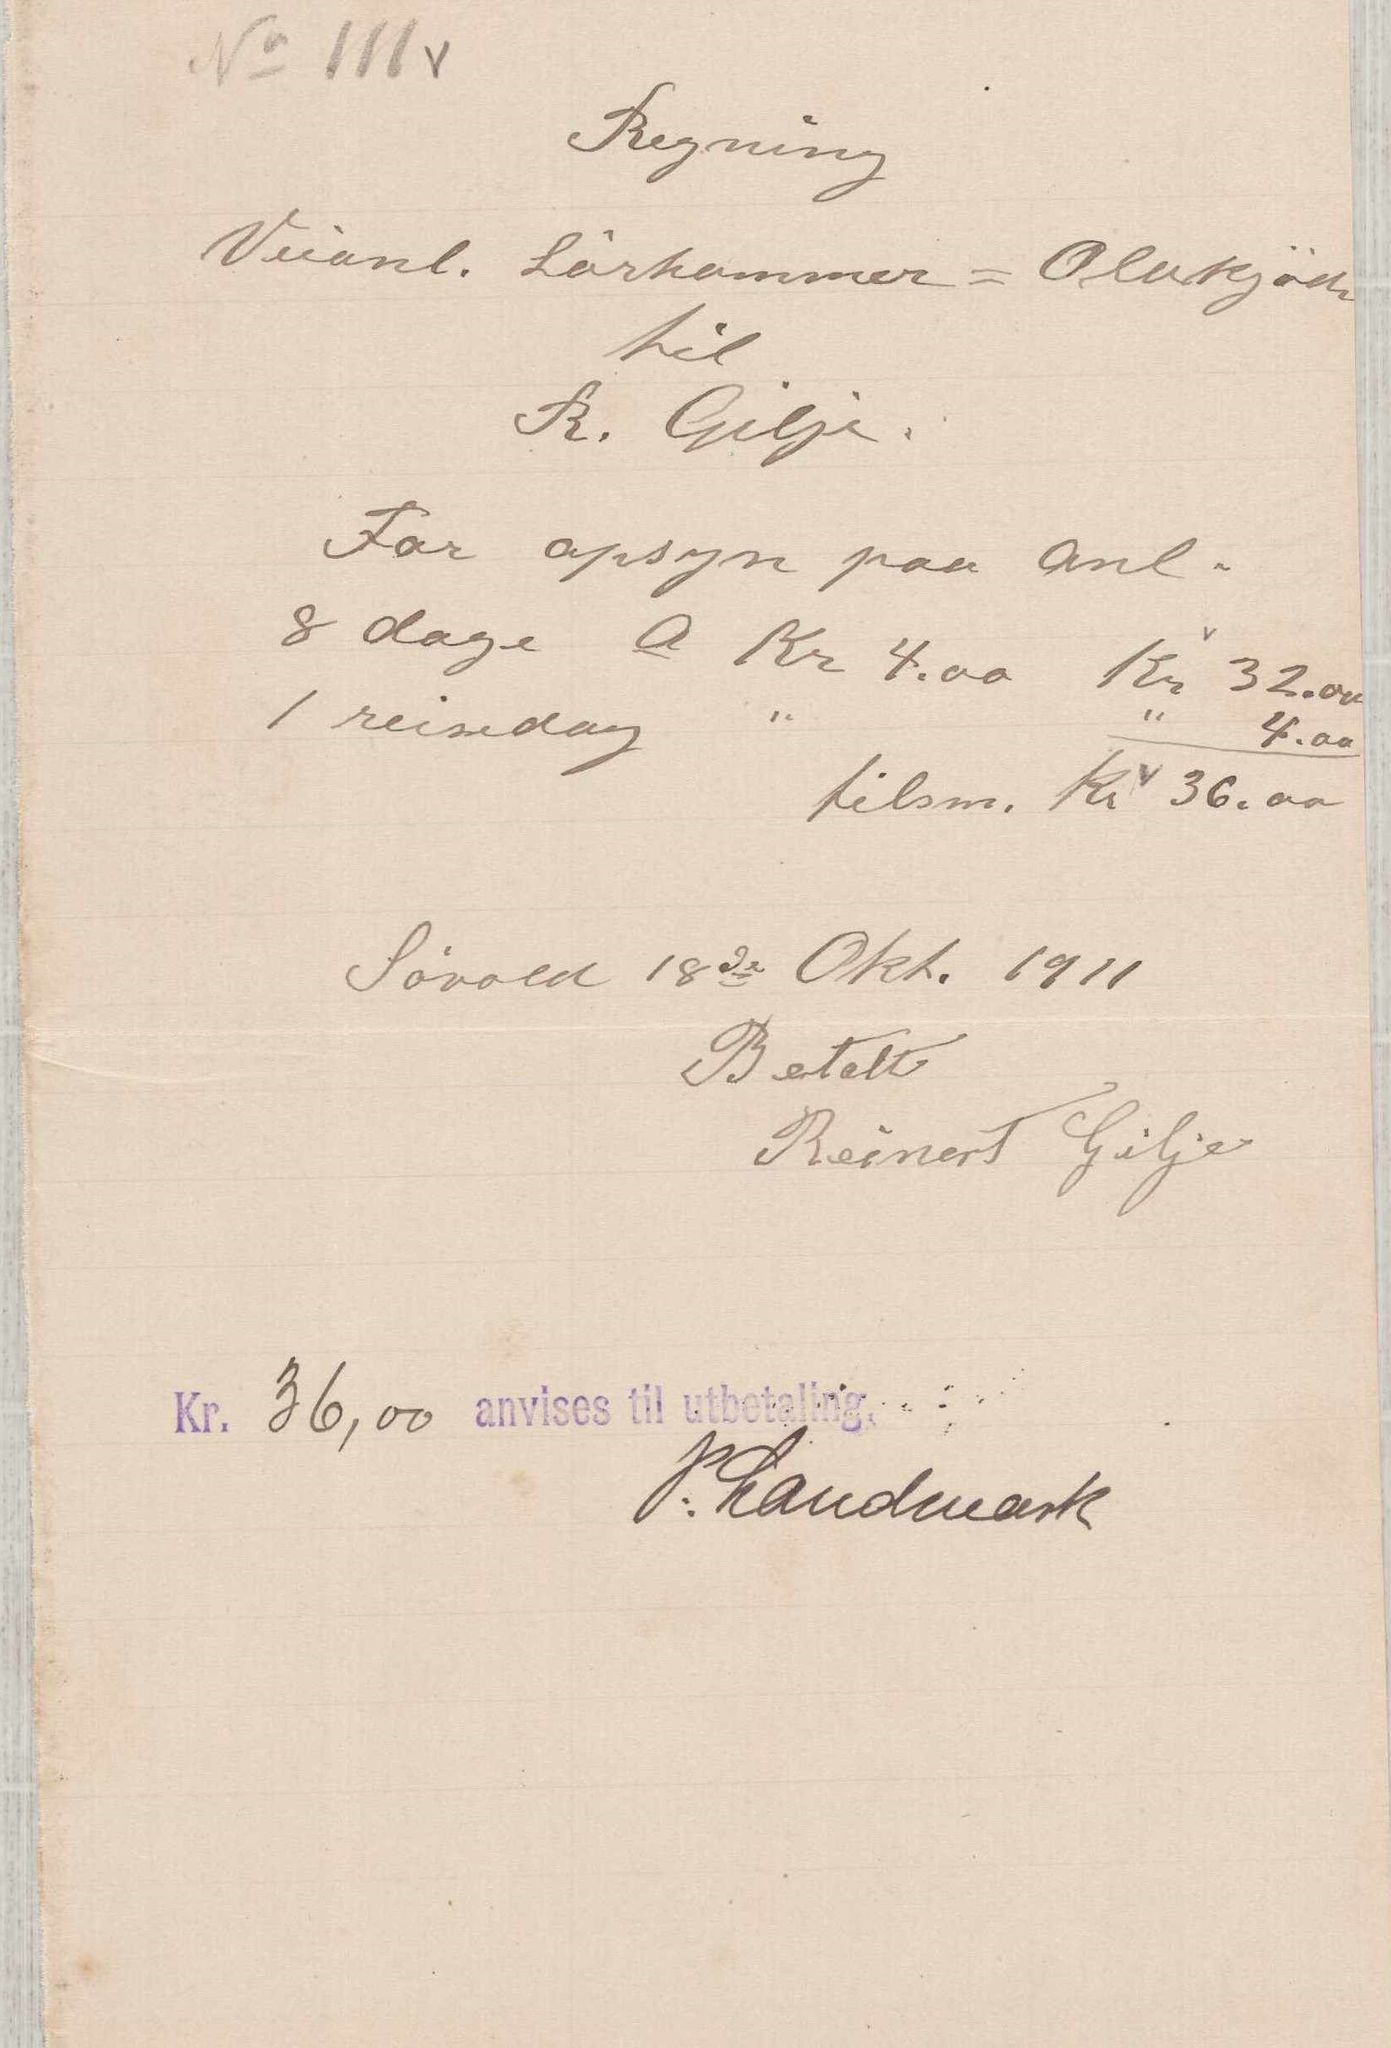 No 111 v
Regning
Veianl. Lörhammer = Olukjöln
til
R. Gilje.
For opsyn paa Anl.
8 dage a Kr 4.00 Kr 32.00
1 reisedag " " 4.00
tilsm. Kr 36.00
Sövold 18de Okt. 1911
Betalt
Reinert Gilje
Kr. 36,00 anvises til utbetaling.
P. Landmark